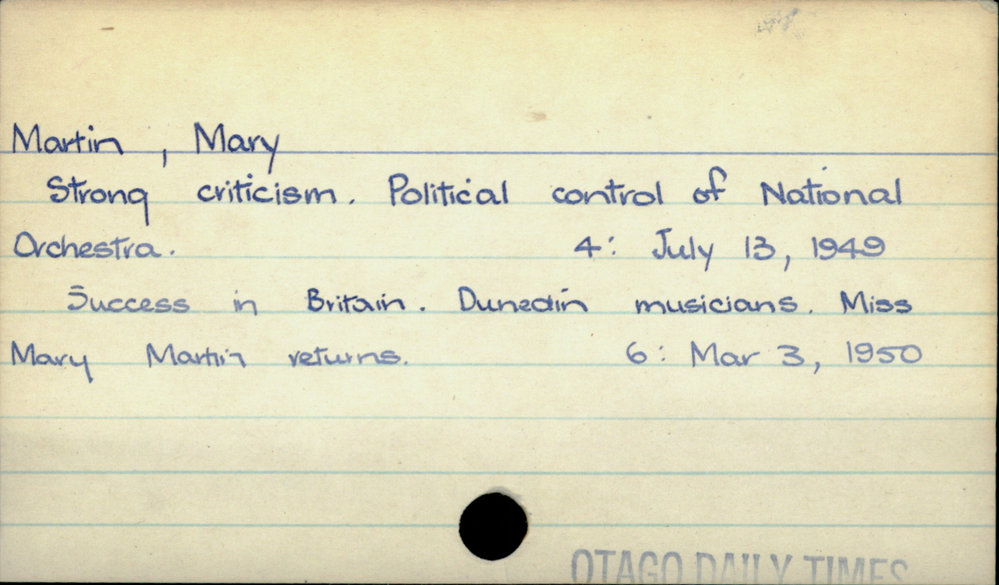 Martin , Mary
Strong criticism. Political control of National
Orchestra. 4: July 13, 1949
Success in Britain. Dunedin musicians. Miss
Mary Martin returns. 6: Mar 3, 1950
OTAGO DAILY TIMES